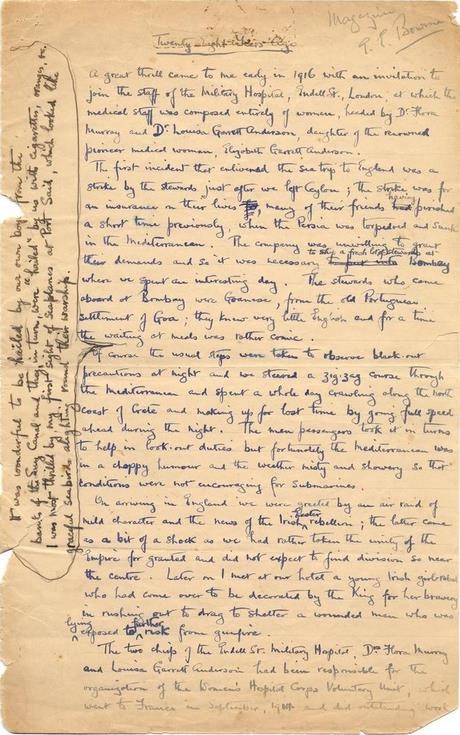 Magazine
Twenty-Eight Years Ago
A great thrill came to me early in 1916 with an invitation to
join the staff of the Military Hospital, Endell St., London, at which the
medical staff was composed entirely of women, headed by Dr Flora
Murray and Dr Louisa Garrett Anderson, daughter of the renowned
pioneer medical woman, Elizabeth Garrett Anderson.
The first incident that enlivened the sea trip to England was a
strike by the stewards just after we left Ceylon; the strike was for
an insurance on their lives, many of their friends having perished
a short time previously, when the Persia was torpedoed and sank
in the Mediterranean. The company was unwilling to grant
their demands and so it was necessary to ship a fresh lot of stewards at Bombay
where we spent an interesting day. The stewards who came
aboard at Bombay were Goanese, from the old Portuguese
settlement of Goa; they knew very little English and for a time
the waiting at meals was rather comic.
Of course the usual steps were taken to observe black-out
precautions at night and we steered a zig-zag course through
the Mediterranean and spent a whole day crawling along the north
coast of Crete and making up for lost time by going full speed
ahead during the night. The men passengers took it in turns
to help in look-out duties but fortunately the Mediterranean was
in a choppy humour and the weather misty and showery so that
conditions were not encouraging for submarines.
On arriving in England we were greeted by an air raid of
mild character and the news of the Irish Easter rebellion; the latter came
as a bit of a shock as we had rather taken the unity of the
Empire for granted and did not expect to find division so near
the centre. Later on I met at our hotel a young Irish girl
who had come over to be decorated by the King for her bravery
in rushing out to drag to shelter a wounded man who was
lying exposed to further risk from gunfire.
The two chiefs of the Endell St. Military Hospital, Drs Flora Murray
and Louisa Garrett Anderson had been responsible for the
organization of the Women's Hospital Corps Voluntary Unit, which
went to France in September, 1914 and did outstanding work
It was wonderful to be hailed by our own boys from the
banks of the Suez Canal and they in turn were "hailed" by us with cigarettes, oranges, etc.
I was most thrilled by my first sight of seaplanes at Port Said, which looked like
graceful seabirds alighting round their warships.